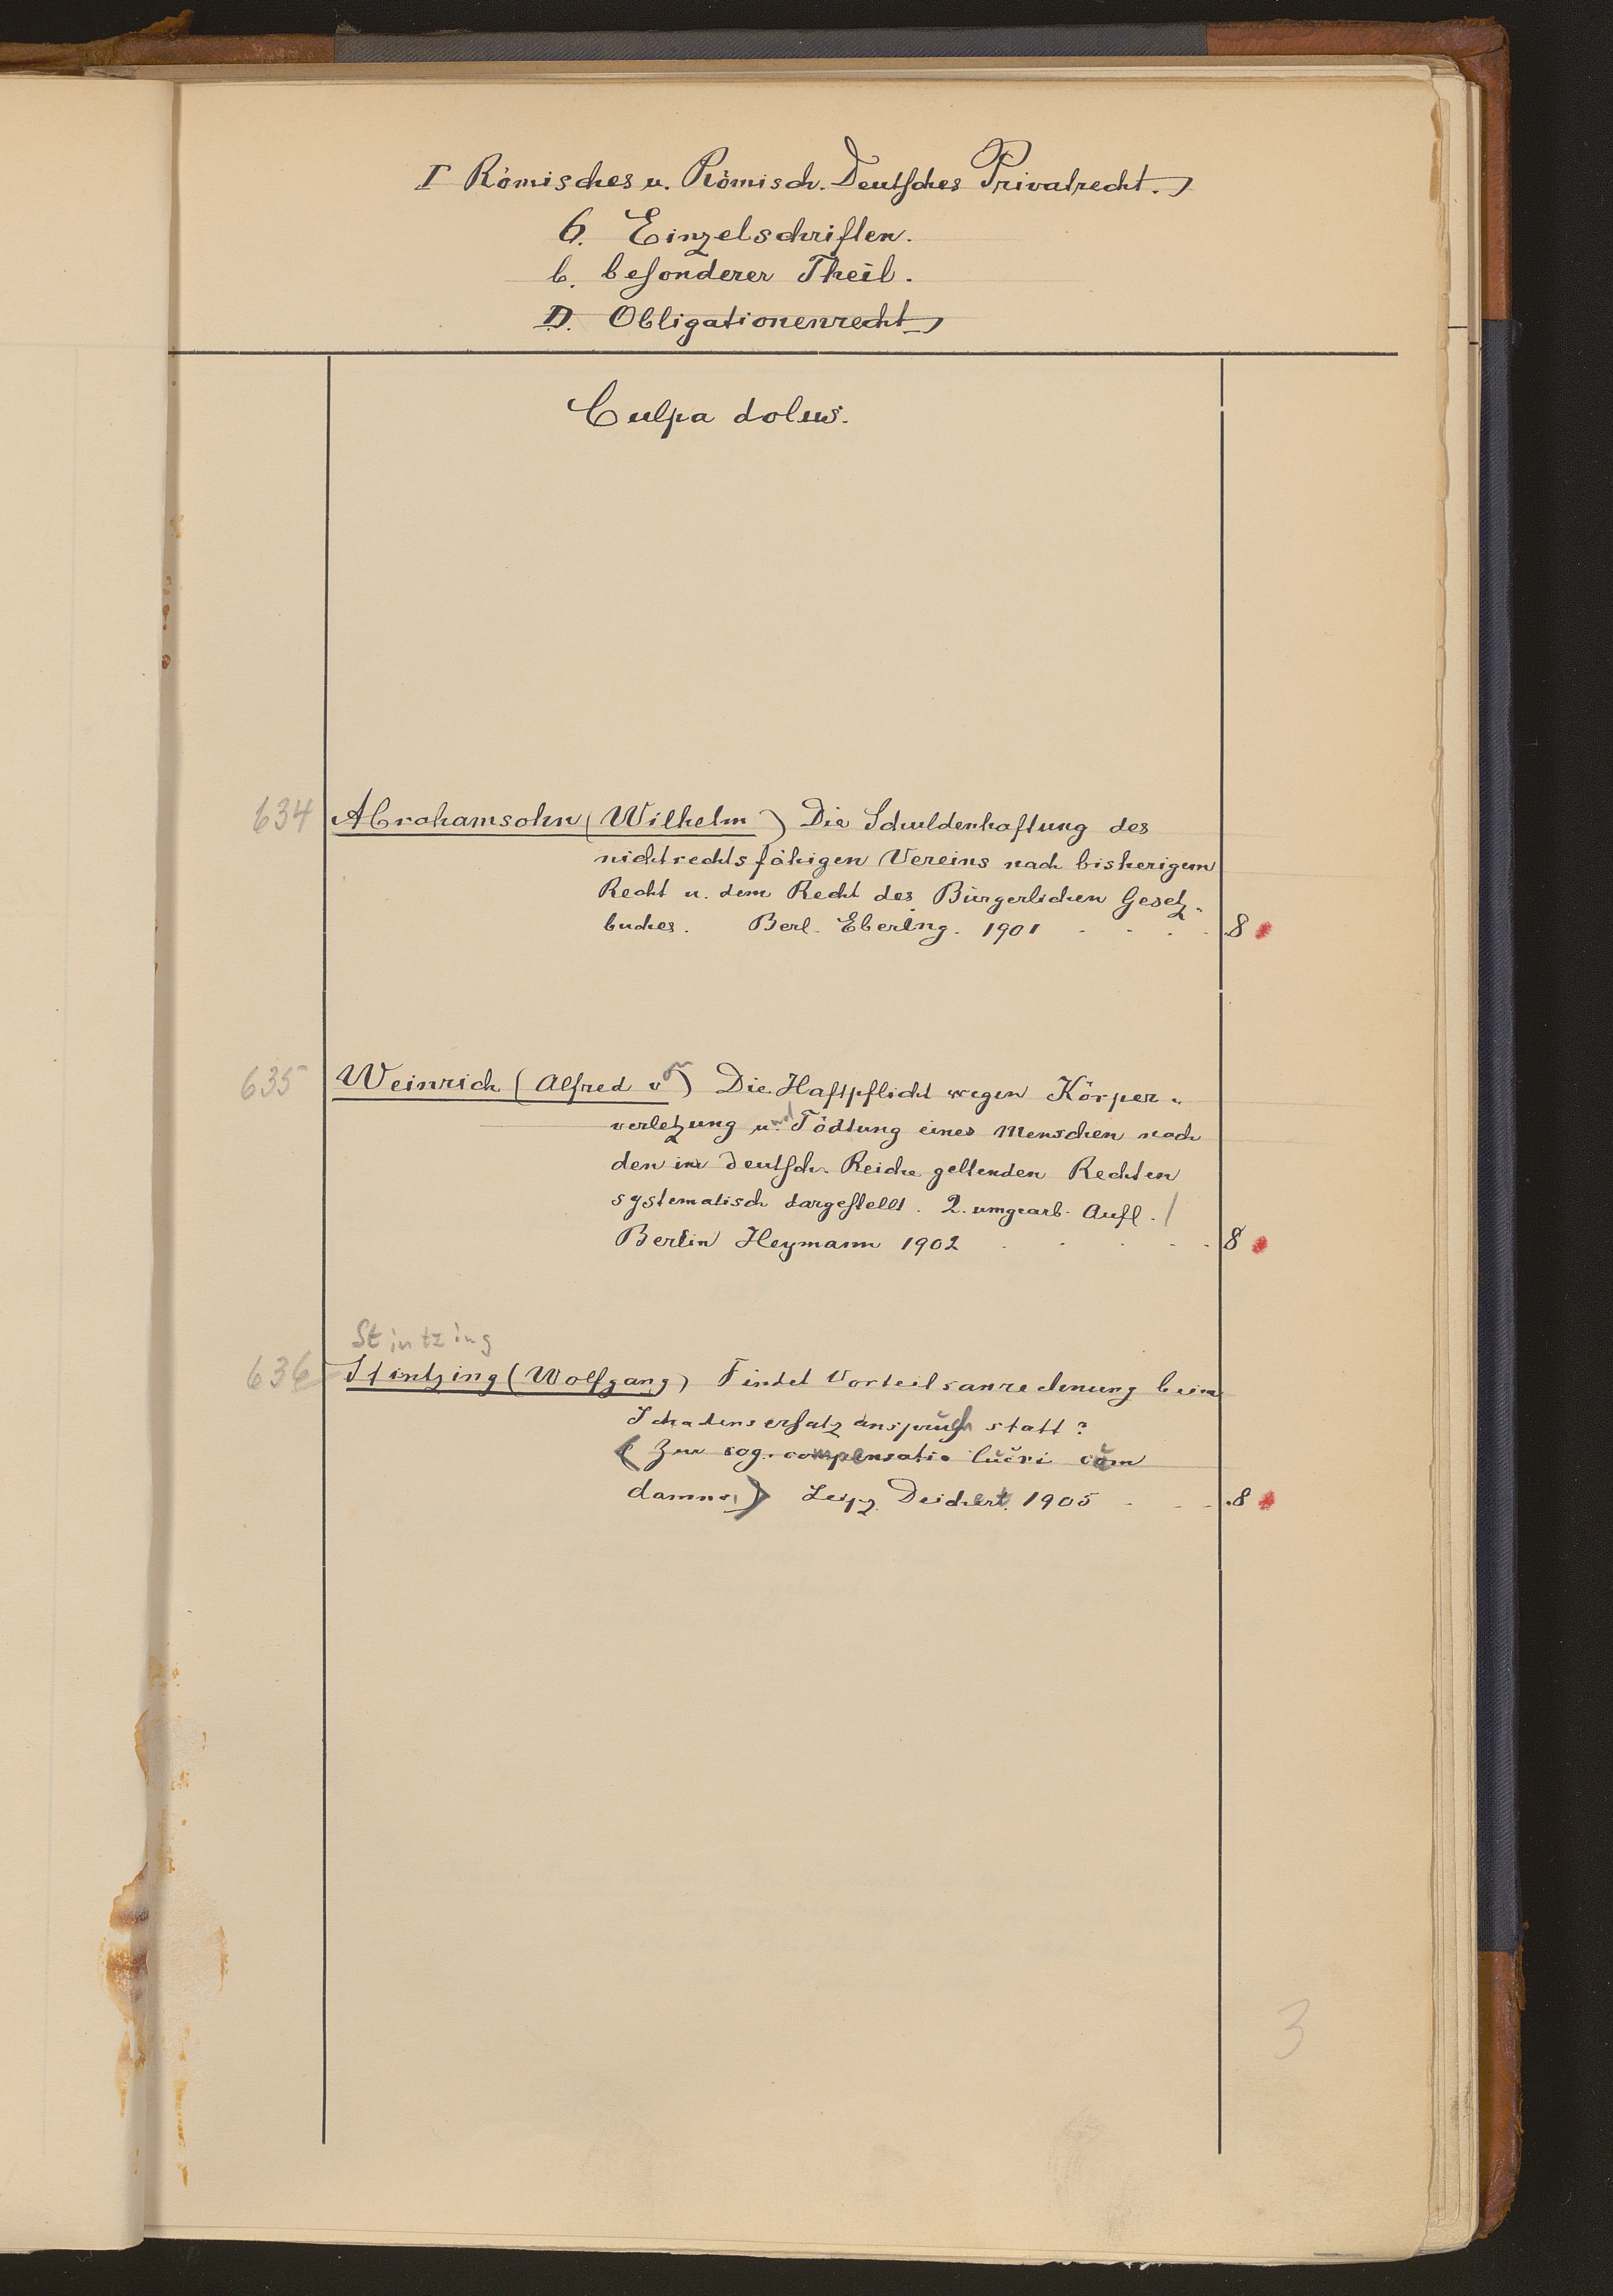 I Römisches u. Römisch. Deutsches Privatrecht.
6. Einzelschriften.
b. besonderer Theil.
D. Obligationenrecht
Culpa dolus.
634 Abrahamsohn (Wilhelm) Die Schuldenhaftung des
nichtrechtsfähigen Vereins nach bisherigem
Recht u. dem Recht des Bürgerlichen Gesetz-
buches. Berl. Ebering. 1901 . . . . 8
635 Weinrich (Alfred von) Die Haftpflicht wegen Körper-
verletzung und Tödtung eines Menschen nach
den im deutsch. Reiche geltenden Rechten
systematisch dargestellt. 2. umgearb. Aufl. /
Berlin Heymann 1902 . . . . . 8
Stintzing
636 Stintzing (Wolfgang) Findet Vorteilsanrechnung beim
Schadensersatzanspruch statt?
(Zur sog. compensatio lucri cum
damno) Leipz. Deichert. 1905 . . . 8
3